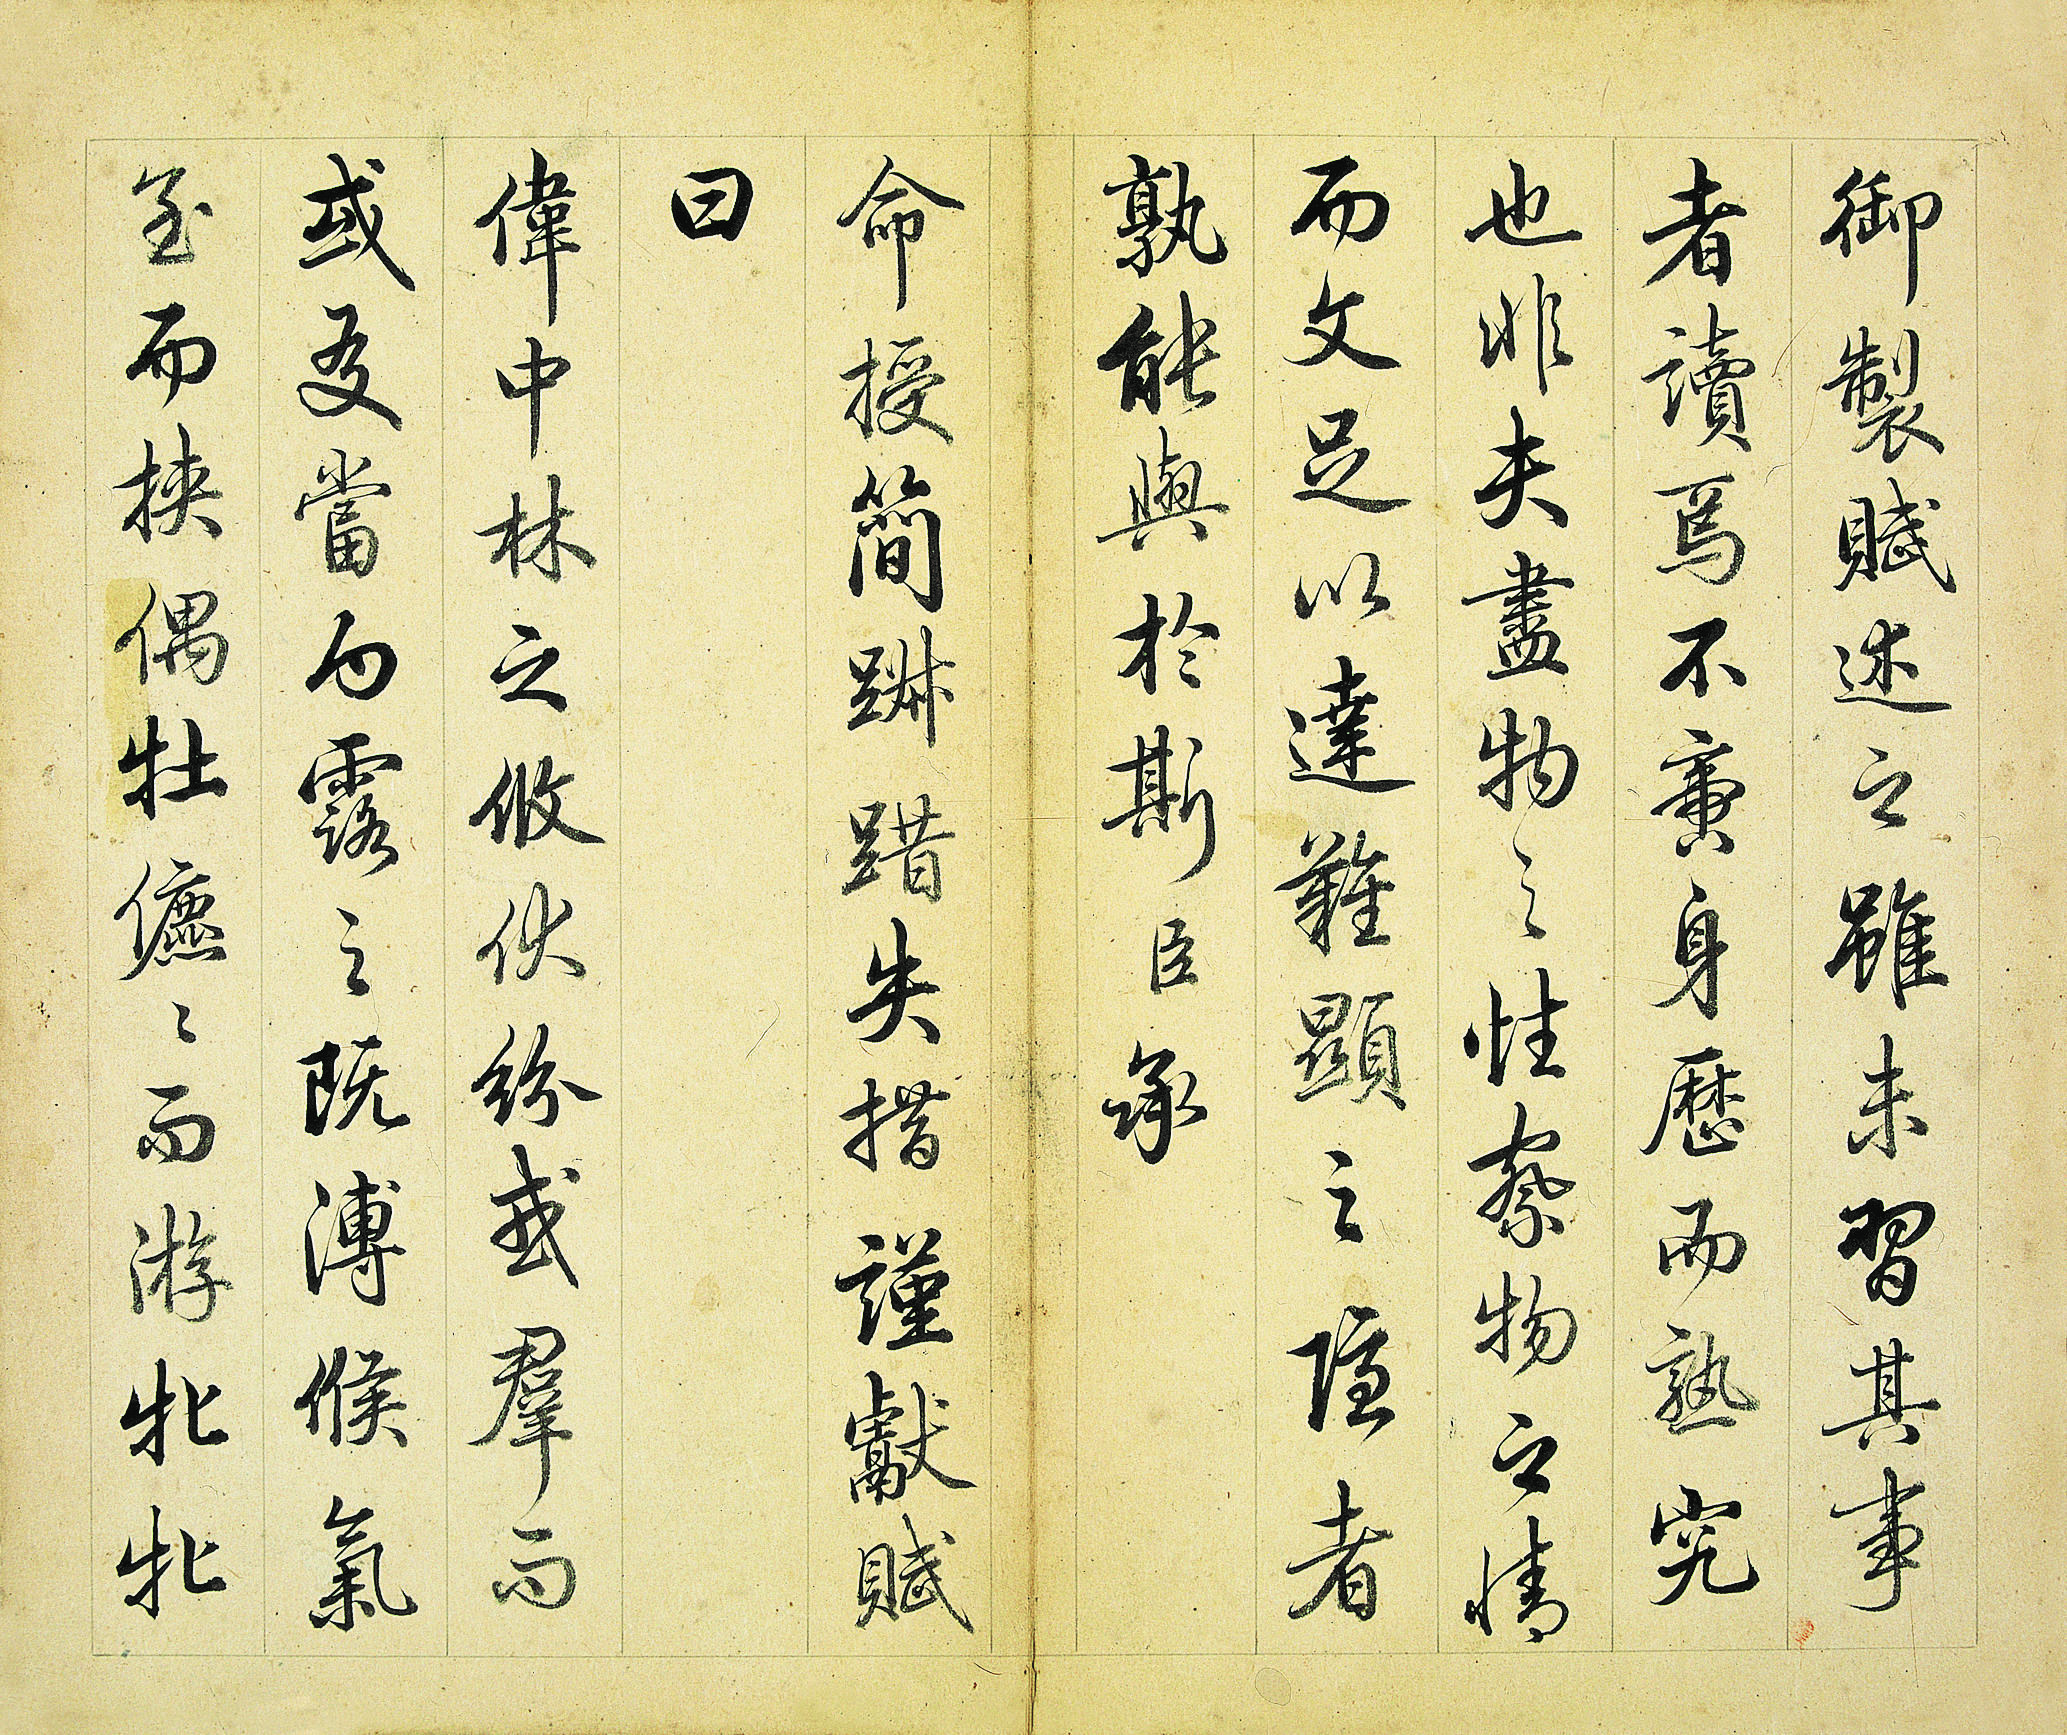 御製賦述之雖未習其事
者讀焉不啻身歷而熟究
也非夫盡物之性察物之情
而文足以達難顯之隱者
孰能與於斯臣承
命授簡踧踖失措謹獻賦
曰
偉中林之攸伏紛或羣而
或友當白露之既漙候氣
至而挾偶牡儦〻而游牝牝